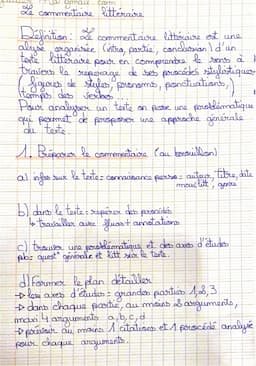 @ gmail. com
Le commentaire littéraire
Définition : Le commentaire littéraire est une
alyse organisée (intro, partie, conclusion) d'un
texte littéraire pour en comprendre le sens à
travers le repérage de ses procédés stylistiques
figures de styles, pronoms, ponctuations,
temps des verbes ...
Pour analyser un texte on pose une problématique
qui permet de proposer une approche générale
du texte.
1. Préparer le commentaire (au brouillon)
a) infos sur le texte : connaissance perso : auteur, titre, date
mouv litt, genre
b) dans le texte : repérer des procédés
↳ travailler avec fluos + annotations
c) trouver une problématique et des axes d'études
pb : quest° générale et litt sur le texte.
d) Former le plan détailler
→ les axes d'études : grandes parties 1, 2, 3
→ dans chaque partie, au moins 2 arguments,
maxi 4 arguments a, b, c, d
→ préciser au moins 1 citations et 1 procédé analysé
pour chaque arguments.